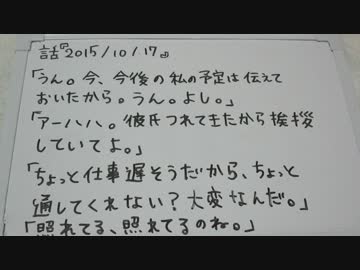 話『2015/10/17』
「うん。今、今後の私の予定は伝えて
おいたから。うん。よし。」
「アーハハ。彼氏つれてきたから挨拶
していてよ。」
「ちょっと仕事遅そうだから、ちょっと
通してくれない?大変なんだ。」
「照れてる、照れてるのね。」